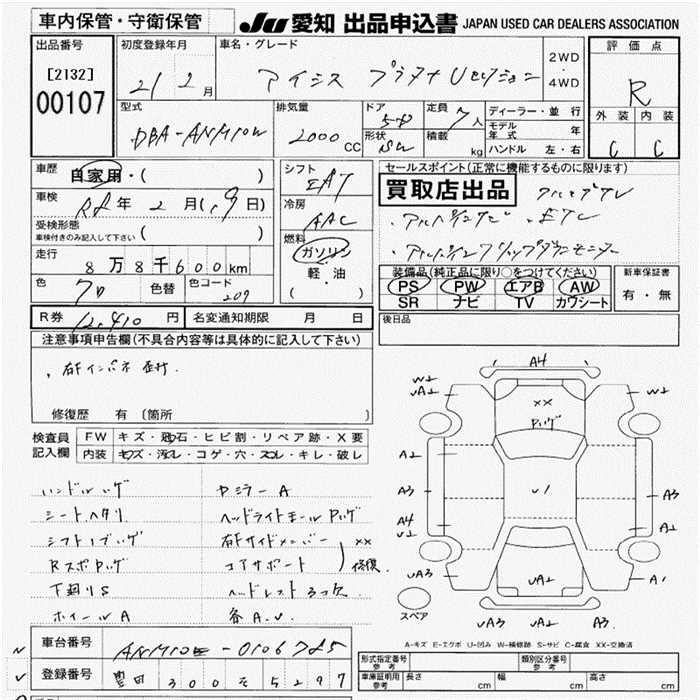 車内保管・守衛保管
JU 愛知 出品申込書 JAPAN USED CAR DEALERS ASSOCIATION
出品番号
[2132]
00107
初度登録年月
21 2月
車名・グレード
アイシス プラタナ Uセレクション
2WD
・
4WD
評価点
R
外装 内装
C C
型式
DBA-ANM10W
排気量
2000 CC
ドア
5ドア
形状
SW
定員
7人
積載
kg
ディーラー・並行
モデル年式 年
ハンドル 左・右
車歴
自家用・( )
車検
R2年 2月(1.9日)
受検形態
車検付きのみ記入して下さい ( )
走行
8万8千600km
色
クロ
色替
色コード
209
シフト
FAT
冷房
AAC
燃料
ガソリン
軽・油
( )
セールスポイント(正常に機能するものに限ります)
買取店出品
アルミ
・アルパインナビ ・ETC
・アルパインフリップダウンモニター
装備品(純正品に限り○をつけてください)
PS PW エアB AW
SR ナビ TV カワシート
新車保証書
有・無
R券 12,410円
名変通知期限 月 日
後日品
注意事項申告欄(不具合内容等は具体的に記入して下さい)
、右Fインパネ
修復歴 有 (箇所
検査員記入欄
FW キズ・飛石・ヒビ割・リペア跡・X要
内装 キズ・汚レ・コゲ・穴・スレ・キレ・破レ
ハンドルハゲ
シートヘタリ
シフトノブハゲ
RスポハゲP
下廻りS
ホイールA
ヤミラーA
ヘッドライトモールPハゲ
右Fサイドメンバー XX
コアサポート 修復
ヘッドレスト3ケ欠
各A.U
A4
W2
UA2
XX
Pハゲ
W2
A2
A3
U1
A3
A4
U2
A1
UA3
UA2
A1
UA3
UA2
A3
スペア
A-キズ E-エクボ U-凹み W-補修跡 S-サビ C-腐食 XX-交換済
車台番号
ANM10-0106785
登録番号
豊田 300 そ 5297
形式指定番号
参考
類別区分番号
参考
車庫証明用
参考
長さ cm
幅 cm
高さ cm